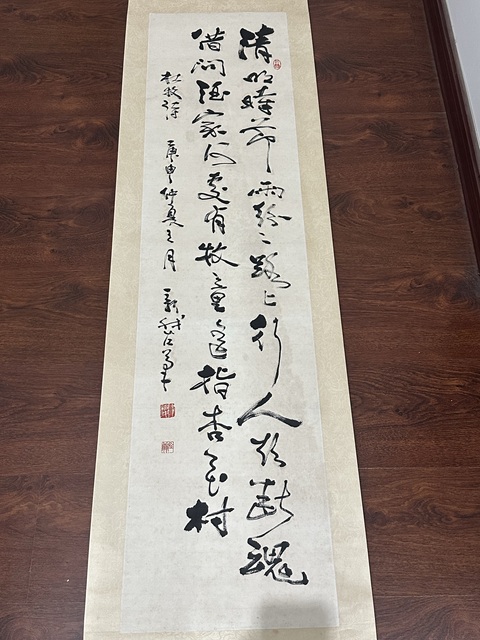 清明時節雨紛〻路上行人欲斷魂
借問酒家何處有牧童遙指杏花村
杜牧詩 庚申仲夏之月